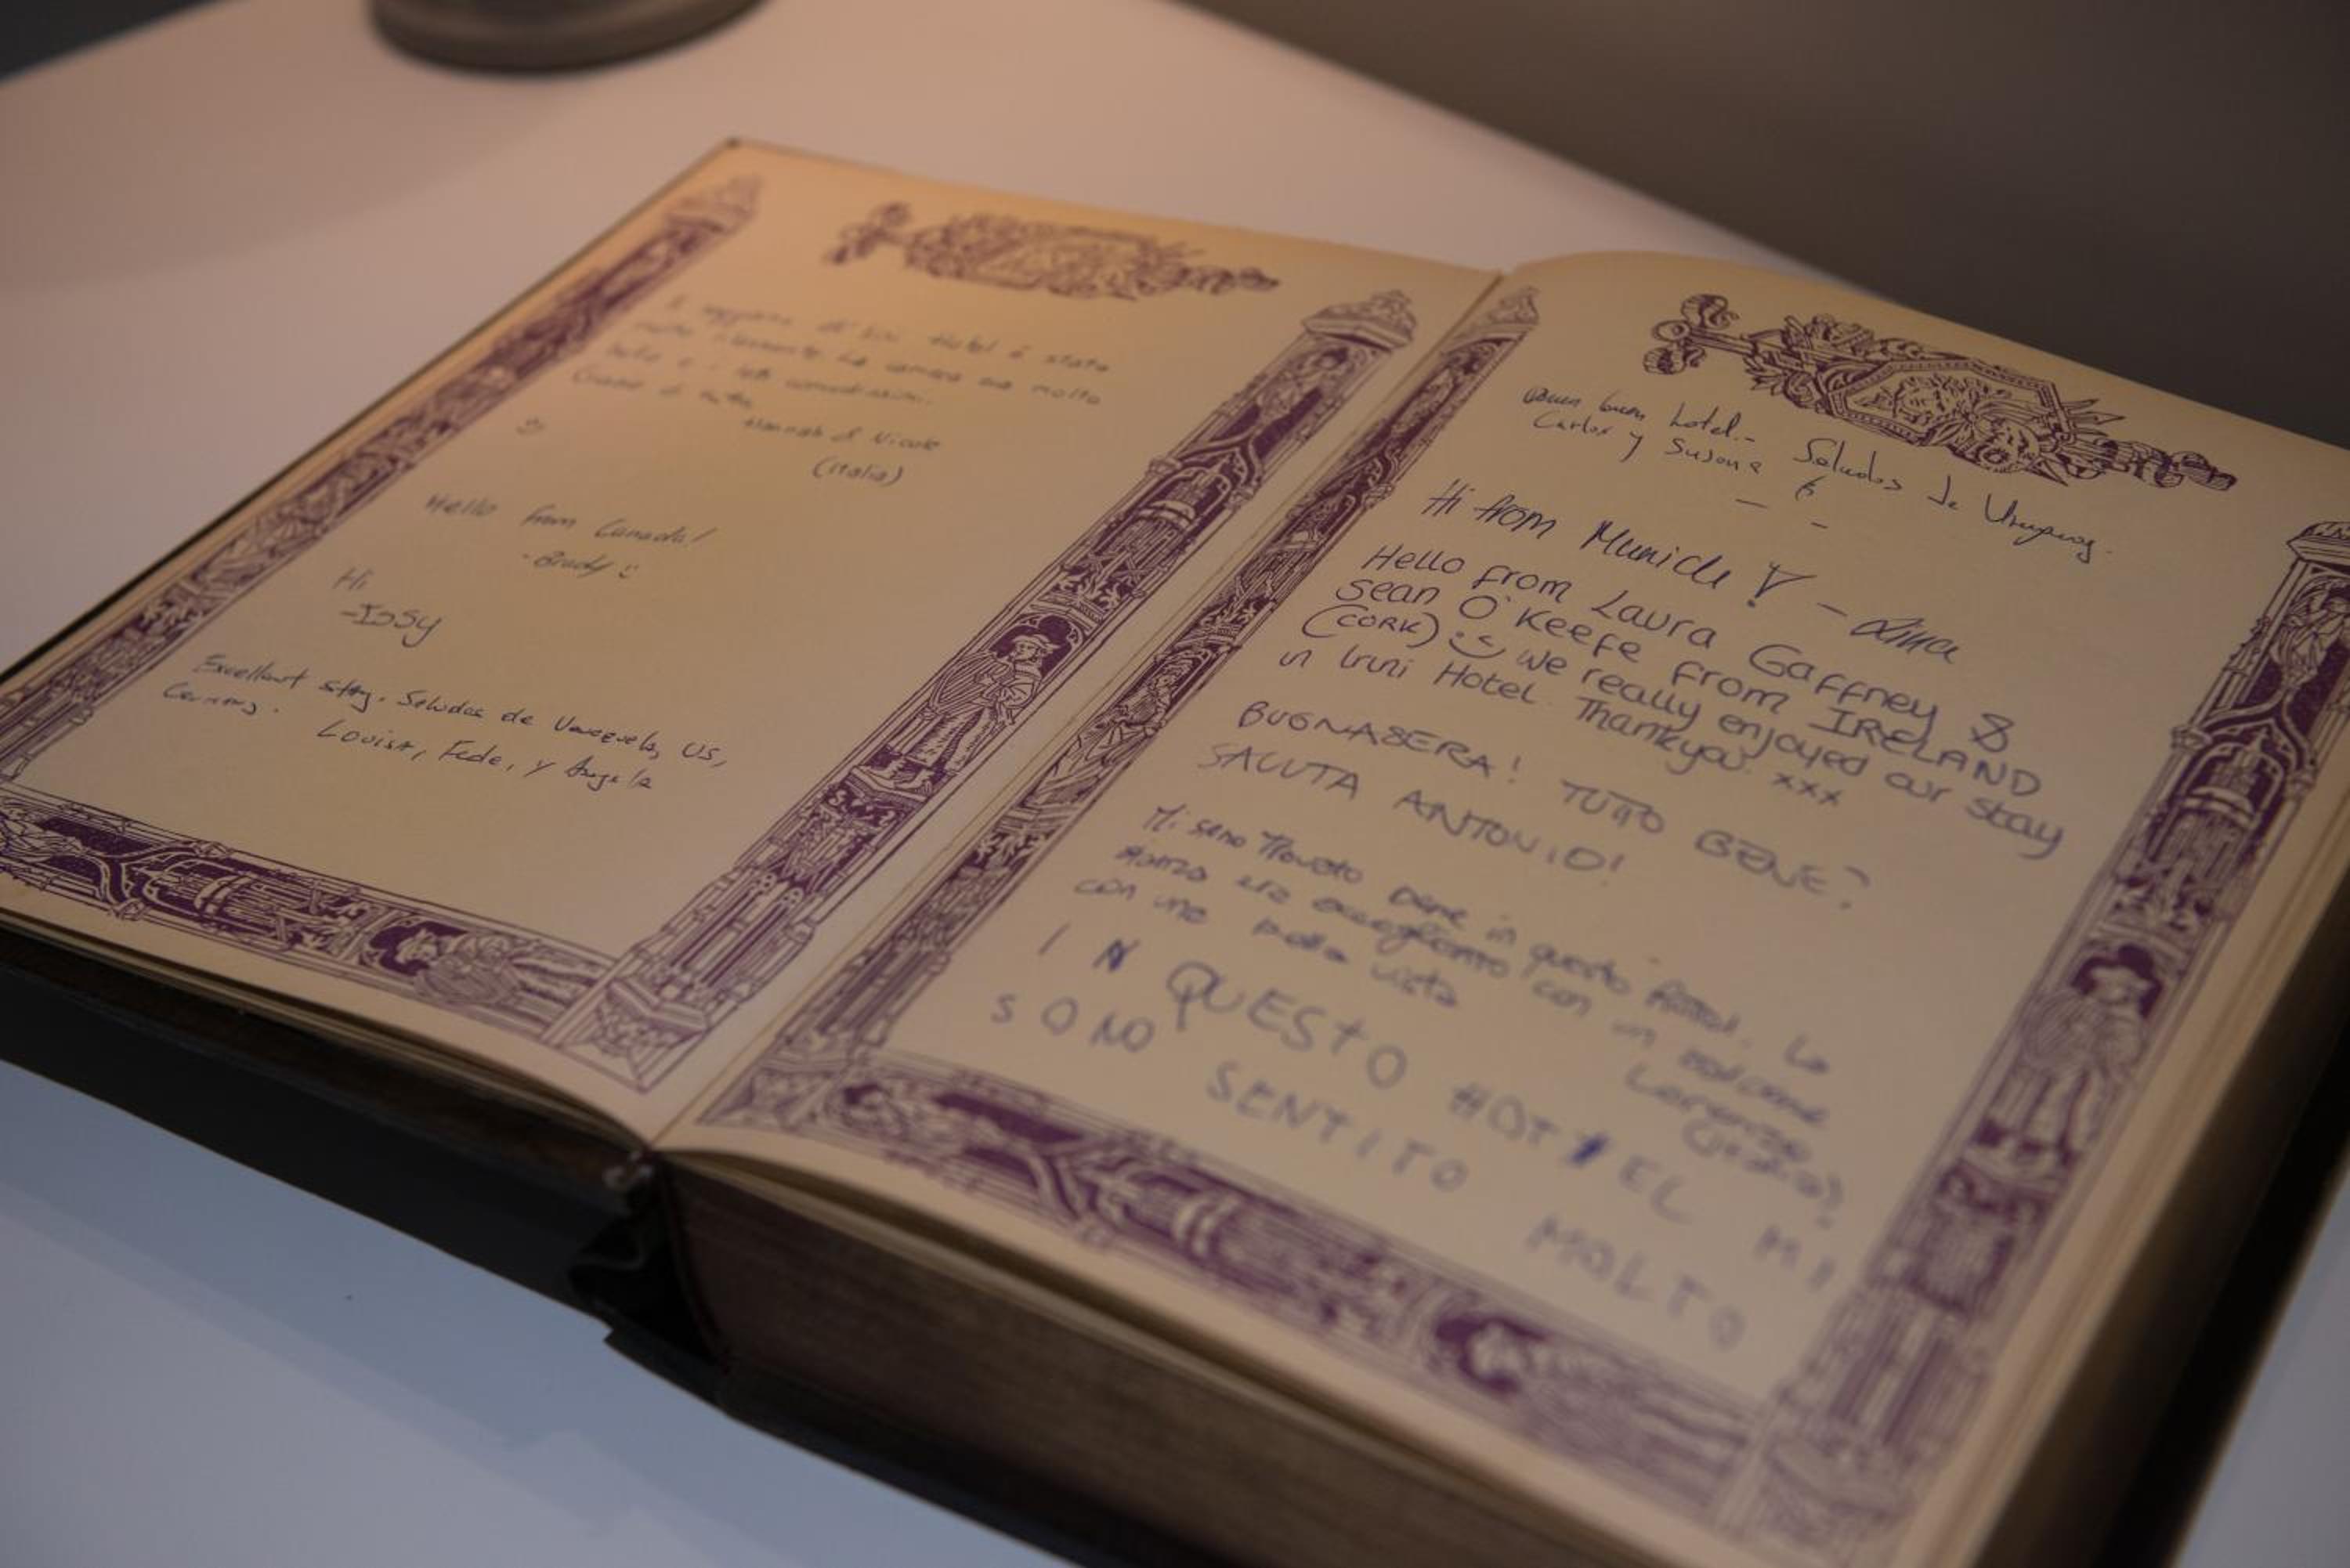 Il soggiorno di Irui Hotel è stato
molto rilassante la camera era molto
bella e i letti comodissimi.
Grazie di tutto
Hannah & Nicole
(Italia)
Hello from Canada!
-Brady :)
Hi
-Issy
Excellent stay. Saludos de Venezuela, US,
Germany.
Louisa, Fede, y Angela
buen hotel.- Saludos de Uruguay.
Carlos y Susana
Hi from Munich! - Lina
Hello from Laura Gaffney &
Sean O'Keefe from IRELAND
(CORK) :) We really enjoyed our stay
in Iruni Hotel. Thankyou. xxx
BUONASERA! TUTTO BENE?
SALUTA ANTONIO!
Mi sono trovato bene in questo hotel. La
stanza era accogliente con un balcone
con una bella vista
Lorenzo
IN QUESTO HOTEL MI
SONO SENTITO MOLTO